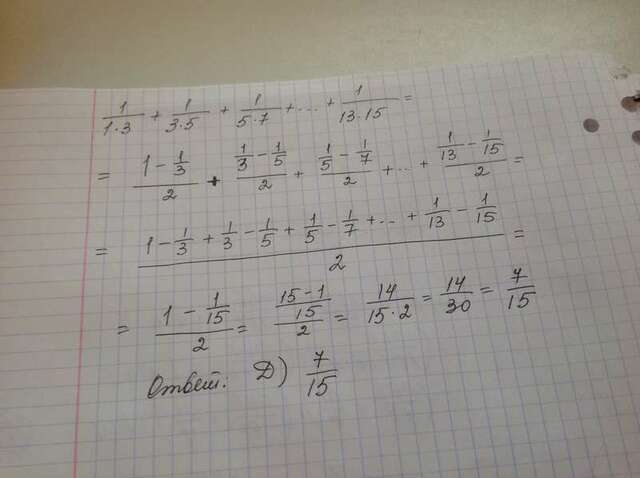 1/(1·3) + 1/(3·5) + 1/(5·7) + ... + 1/(13·15) =
= (1 - 1/3)/2 + (1/3 - 1/5)/2 + (1/5 - 1/7)/2 + ... + (1/13 - 1/15)/2 =
= (1 - 1/3 + 1/3 - 1/5 + 1/5 - 1/7 + ... + 1/13 - 1/15)/2 =
= (1 - 1/15)/2 = ((15-1)/15)/2 = 14/(15·2) = 14/30 = 7/15
Ответ: Д) 7/15